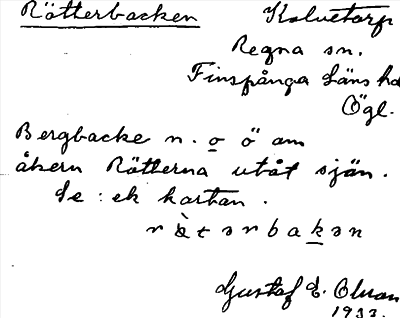 Rötterbacken Kolvetorp
Regna sn.
Finspånga Läns hd
Ögl.
Bergbacke n. o ö om
åkern Rötterna utåt sjön.
Se : ek kartan.
Gustaf E.
1933.